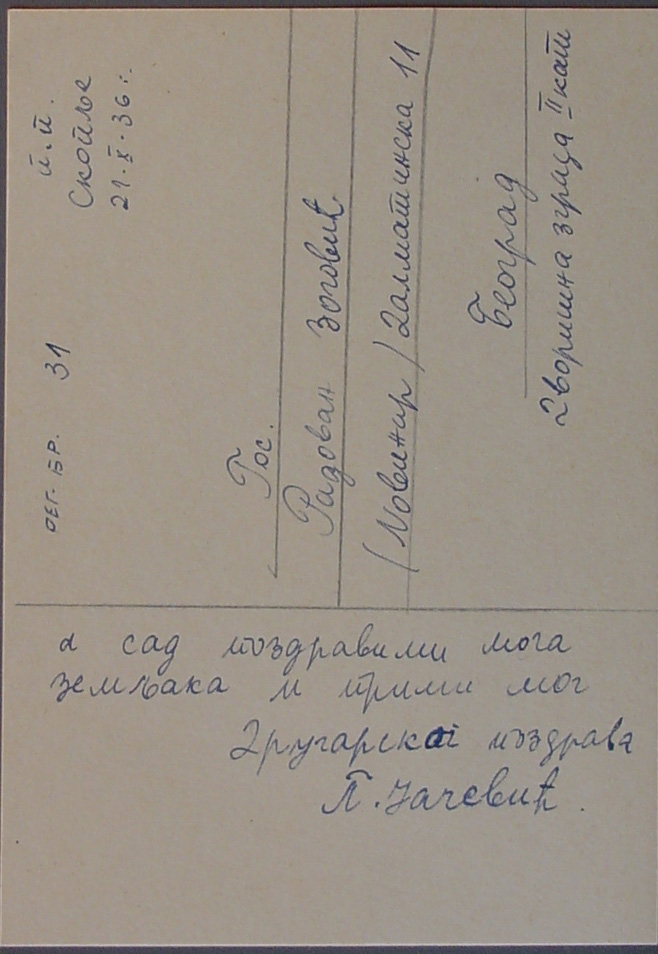 п.п.
Скопље
21.X.36г.
ОЕГ. БР. 31
Гос.
Радован Зоговић
(Новинар) Далматинска 11
Београд
Дворишна зграда II кат
а сад поздрави ми мога
земљака и прими мог
другарског поздрава